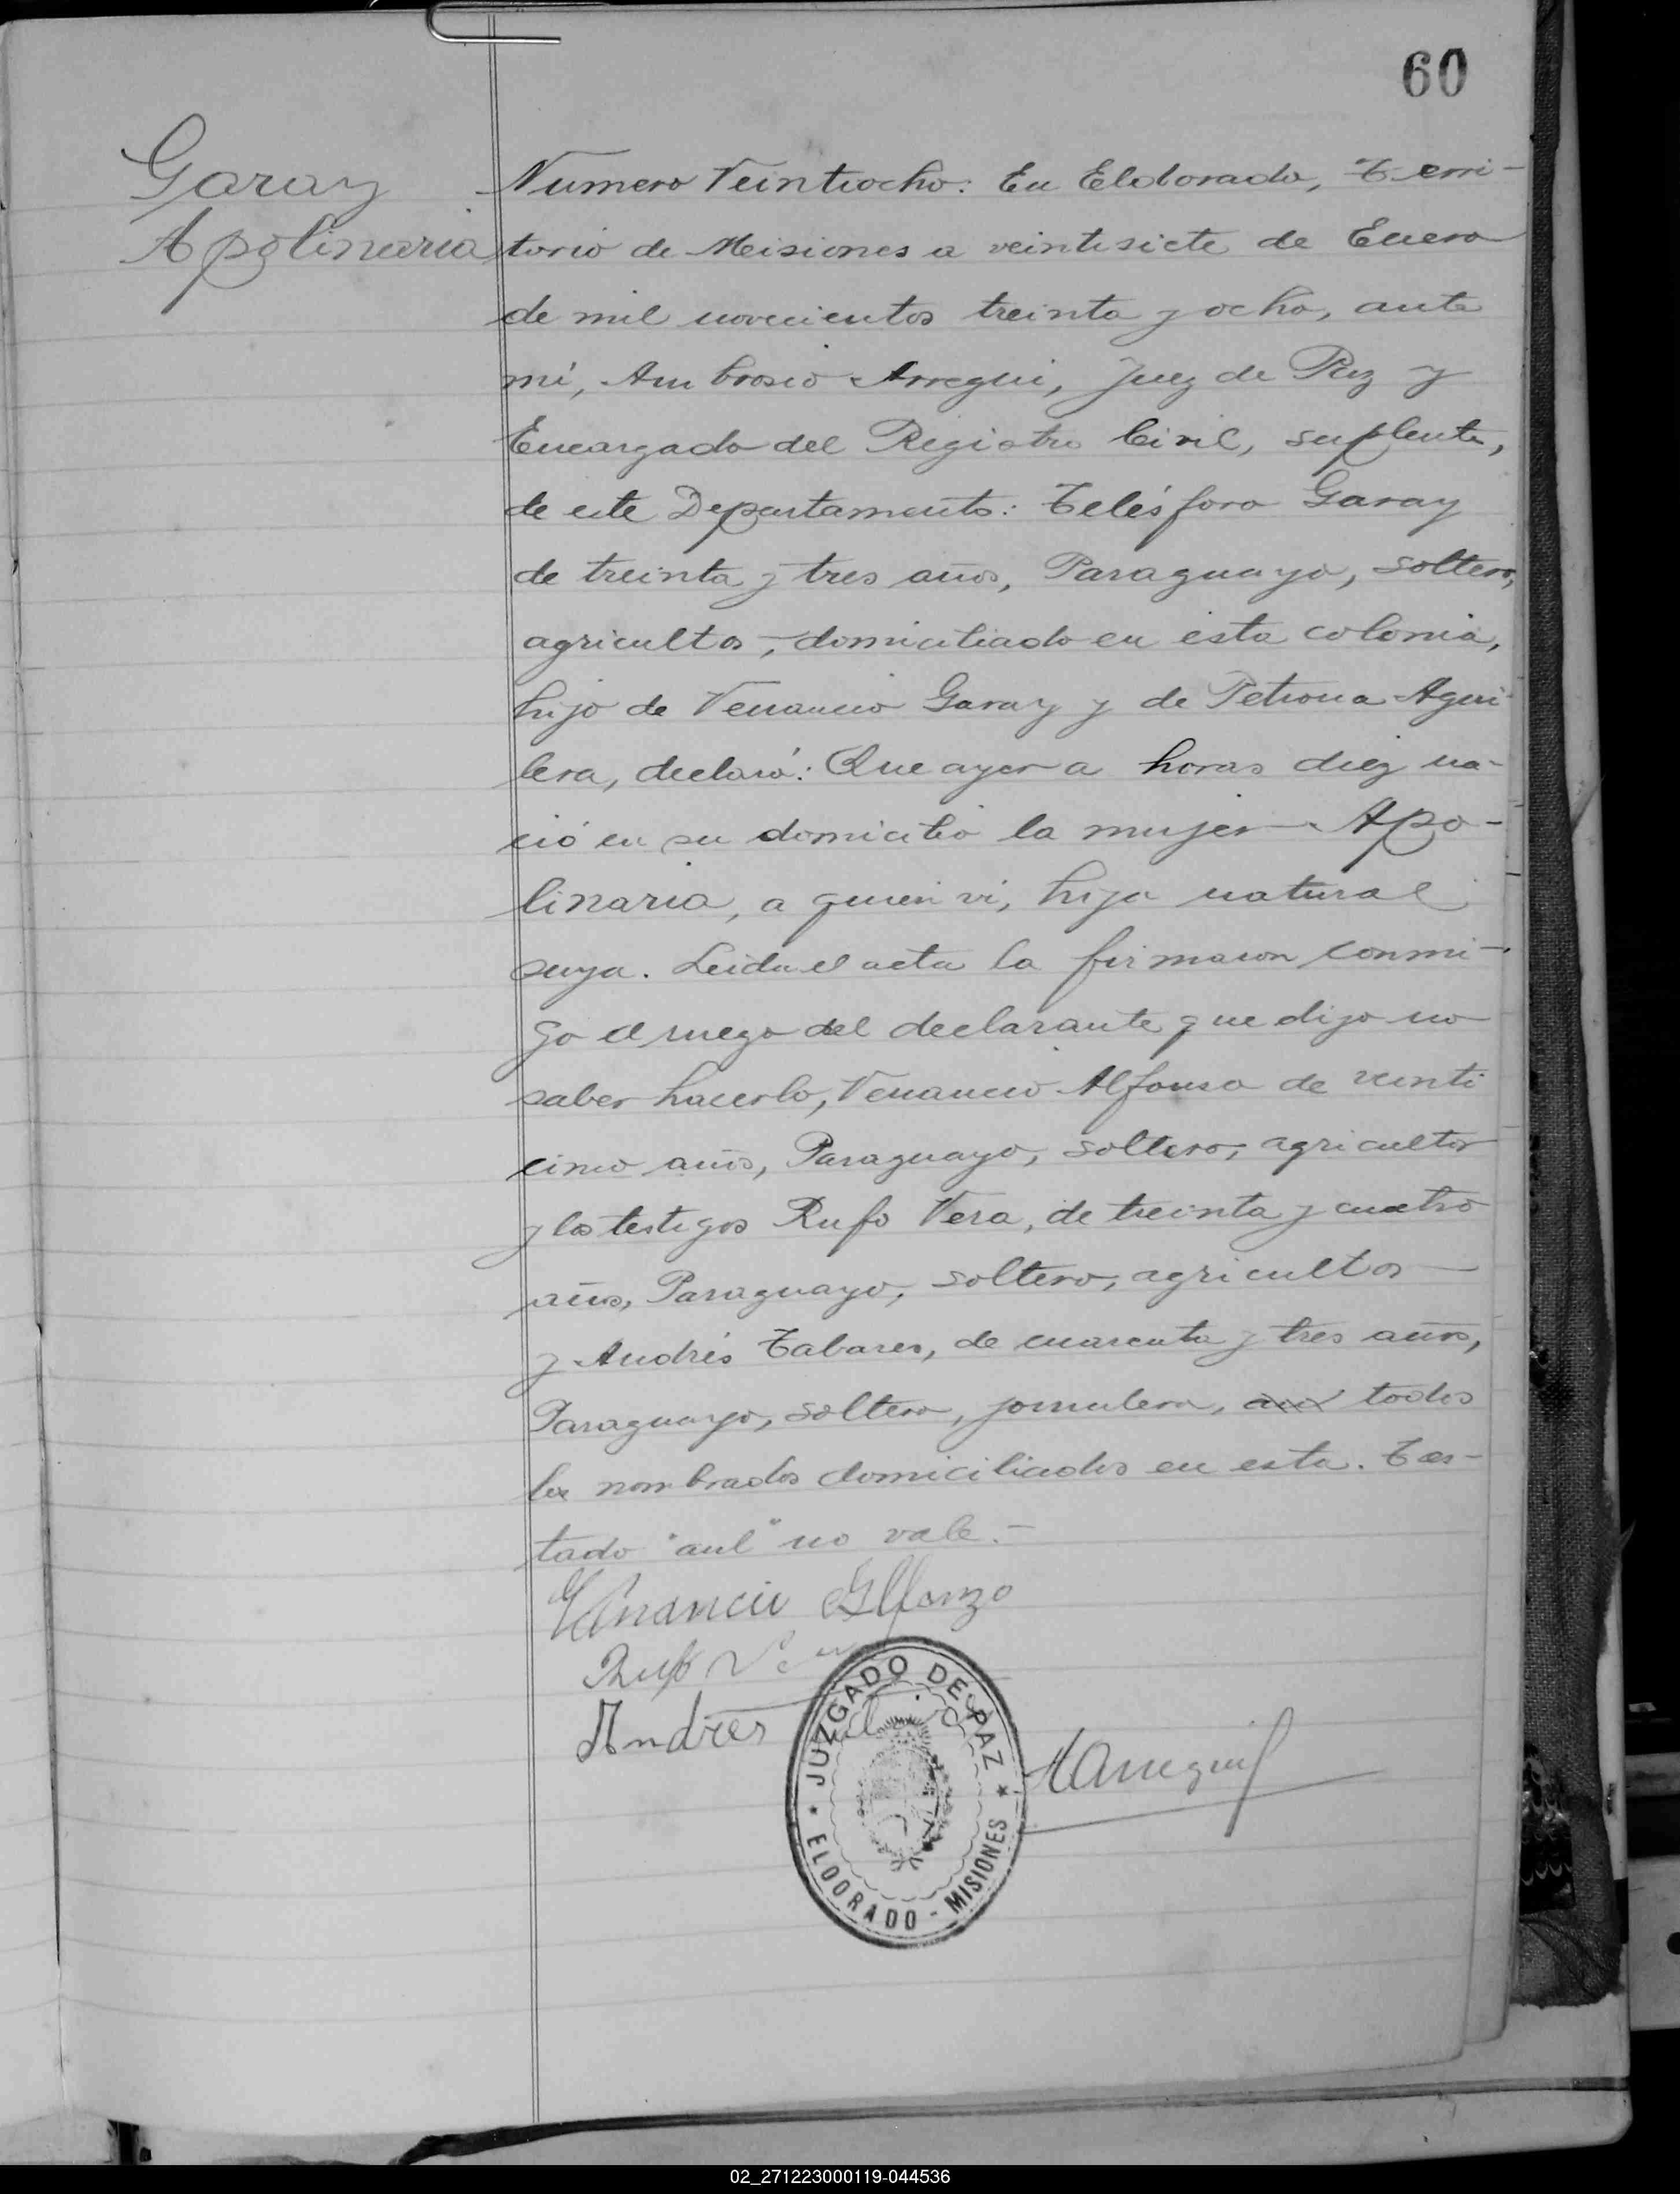 60
Garay
Apolinaria
Numero Veintiocho: En Eldorado, Terri-
torio de Misiones a veintisiete de Enero
de mil novecientos treinta y ocho, ante
mí, Ambrosio Arregui, Juez de Paz y
Encargado del Registro Civil, suplente,
de este Departamento: Telésforo Garay
de treinta y tres años, Paraguayo, soltero,
agricultor, domiciliado en esta colonia,
hijo de Venancio Garay y de Petrona Agui-
lera, declaró: Que ayer a horas diez na-
ció en su domicilio la mujer Apo-
linaria, a quien vi, hija natural
suya. Leida el acta la firmaron conmi-
go el ruego del declarante que dijo no
saber hacerlo, Venancio Alfonso de veinti
cinco años, Paraguayo, soltero, agricultor
y los testigos Rufo Vera, de treinta y cuatro
años, Paraguayo, soltero, agricultor
y Andrés Tabares, de cuarenta y tres años,
Paraguayo, soltero, jornalero, todos
los nombrados domiciliados en esta. Tes-
tado "aul" no vale.-
Venancio Alfonzo
Rufo Vera
Andres
JUZGADO DE PAZ
ELDORADO - MISIONES
AArregui
02_271223000119-044536